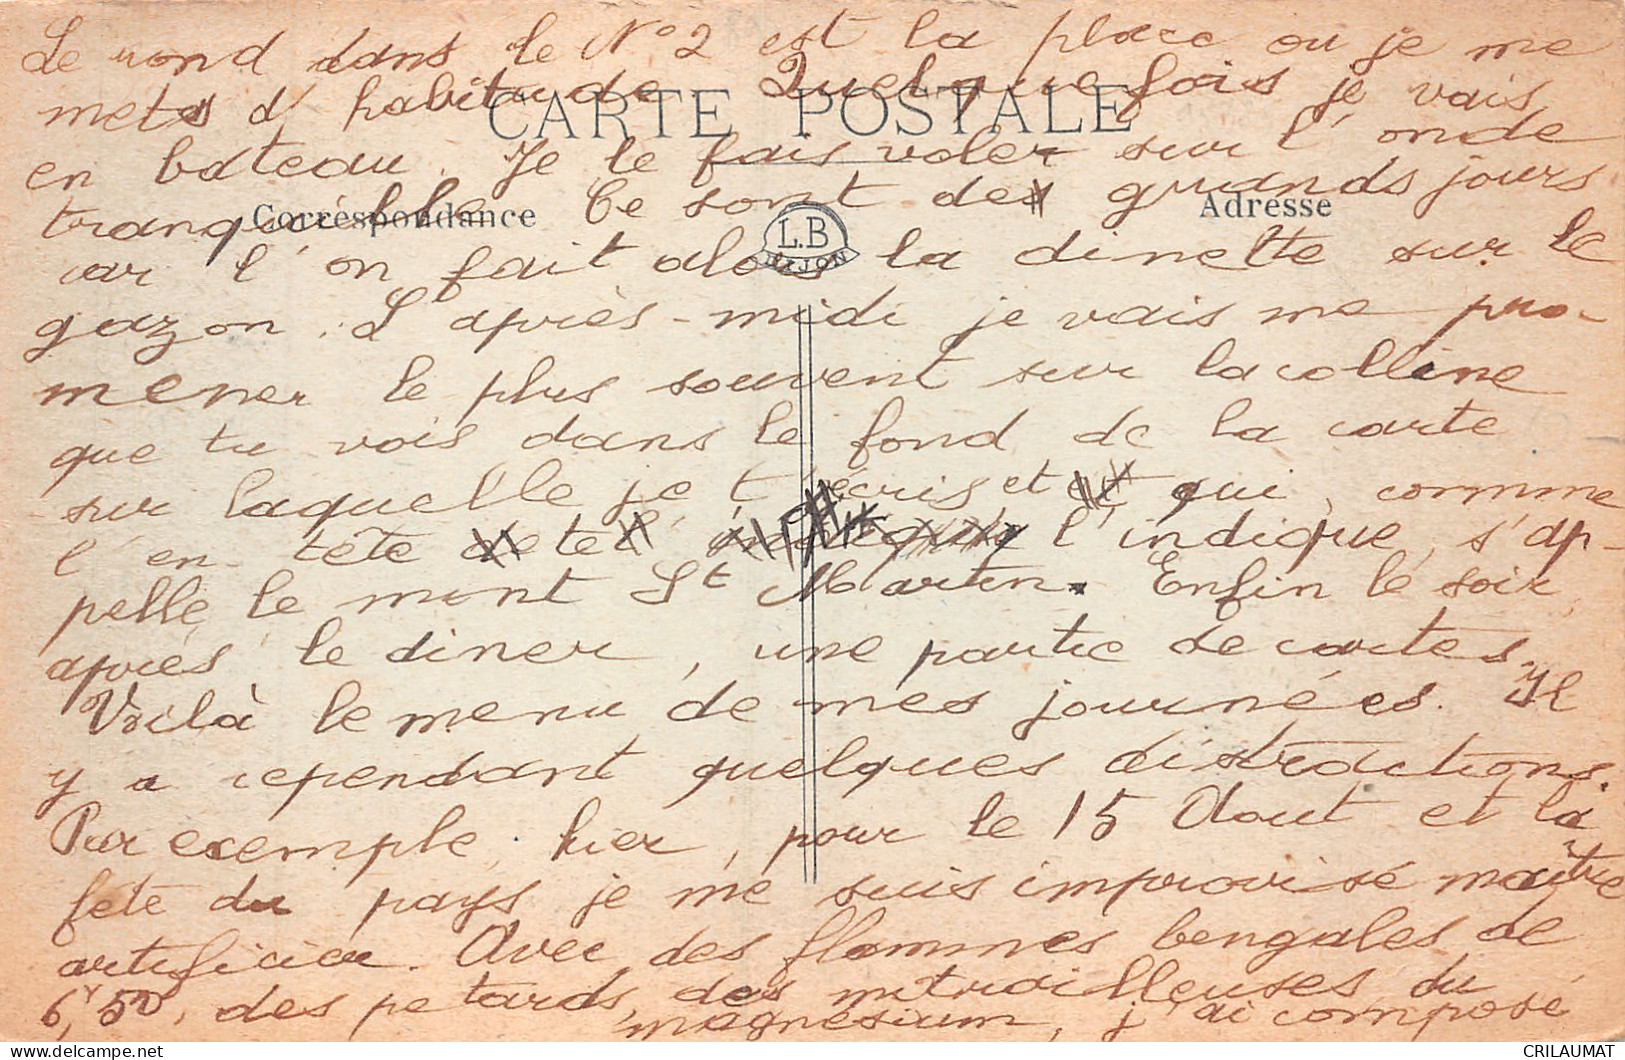 Le rond dans le N° 2 est la place ou je me
mets d'habitude. Quelquefois je vais
CARTE POSTALE
en bateau. Je le fais voler sur l'onde
tranquille. Ce sont des grands jours
Correspondance
Adresse
L.B
DIJON
car l'on fait alors la dinette sur le
gazon. L'après-midi je vais me pro-
mener le plus souvent sur la colline
que tu vois dans le fond de la carte
sur laquelle je t'écris et qui, comme
l'en tête l'indique, s'ap-
pelle le mont St Martin. Enfin le soir,
après le diner, une partie de cartes.
Voilà le menu de mes journées. Il
y a cependant quelques distractions.
Par exemple, hier, pour le 15 Aout et la
fête du pays je me suis improvisé maître
artificier. Avec des flammes bengales de
6f,50, des petards, des mitrailleuses du
magnesium, j'ai composé
CRILAUMAT